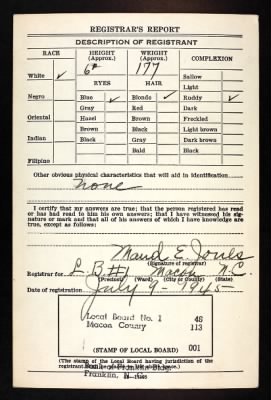 REGISTRAR'S REPORT
DESCRIPTION OF REGISTRANT
RACE HEIGHT (Approx.) WEIGHT (Approx.) COMPLEXION
White ✓ 6 177 Sallow
EYES HAIR Light
Negro Blue ✓ Blonde ✓ Ruddy ✓
Gray Red Dark
Oriental Hazel Brown Freckled
Brown Black Light brown
Indian Black Gray Dark brown
Bald Black
Filipino
Other obvious physical characteristics that will aid in identification
None
I certify that my answers are true; that the person registered has read
or has had read to him his own answers; that I have witnessed his sig-
nature or mark and that all of his answers of which I have knowledge are
true, except as follows:
Maud E. Jones
(Signature of registrar)
Registrar for L B #1 Macon N.C.
(Precinct) (Ward) (City or County) (State)
Date of registration July 9 - 1945
Local Board No. 1 46
Macon County 113
001
(STAMP OF LOCAL BOARD)
(The stamp of the Local Board having jurisdiction of the
Bank of Franklin Bldg.
Franklin,